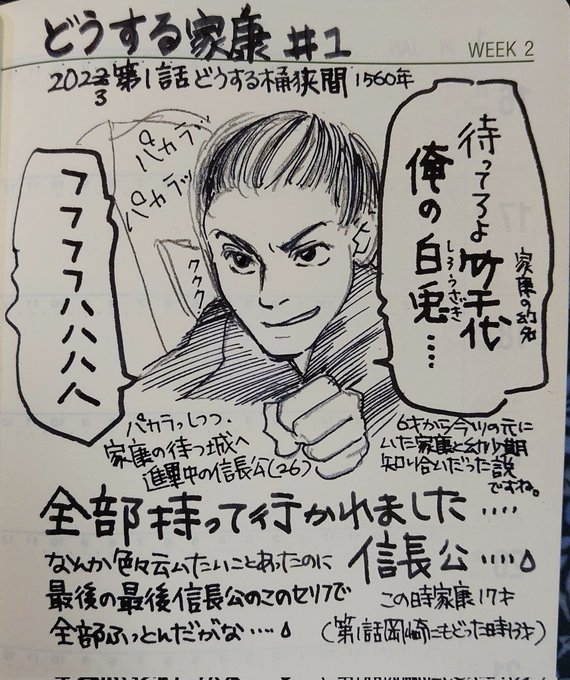 どうする家康 #1
WEEK 2
2023 第1話 どうする桶狭間 1560年
待ってろよ
竹千代
家康の幼名
俺の白兎....
しろうさぎ
パカラッ
パカラッ
ククク
フフフフハハハハ
パカラッしつつ、
家康の待つ城へ
進軍中の信長公(26)
6才から今川の元に
いた家康と幼少期
知り合いだった説
ですね。
全部持って行かれました....
信長公....
なんか色々云ムたいことあったのに
最後の最後信長公のこのセリフで
全部ふっとんだがな....
この時家康17才
(第1話岡崎にもどった時13才)